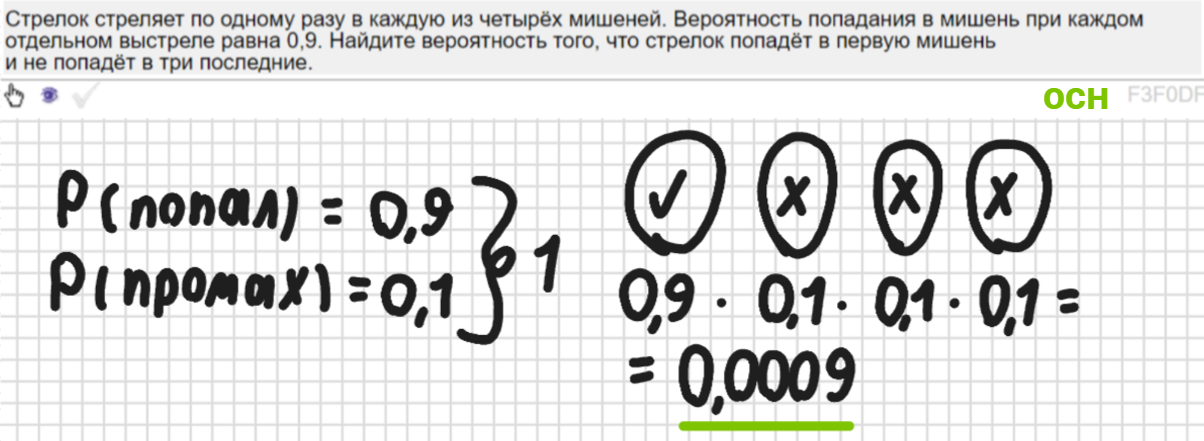 Стрелок стреляет по одному разу в каждую из четырёх мишеней. Вероятность попадания в мишень при каждом
отдельном выстреле равна 0,9. Найдите вероятность того, что стрелок попадёт в первую мишень
и не попадёт в три последние.
осн F3F0DF
P(попал) = 0,9
P(промах) = 0,1
1
✓ x x x
0,9 · 0,1 · 0,1 · 0,1 =
= 0,0009